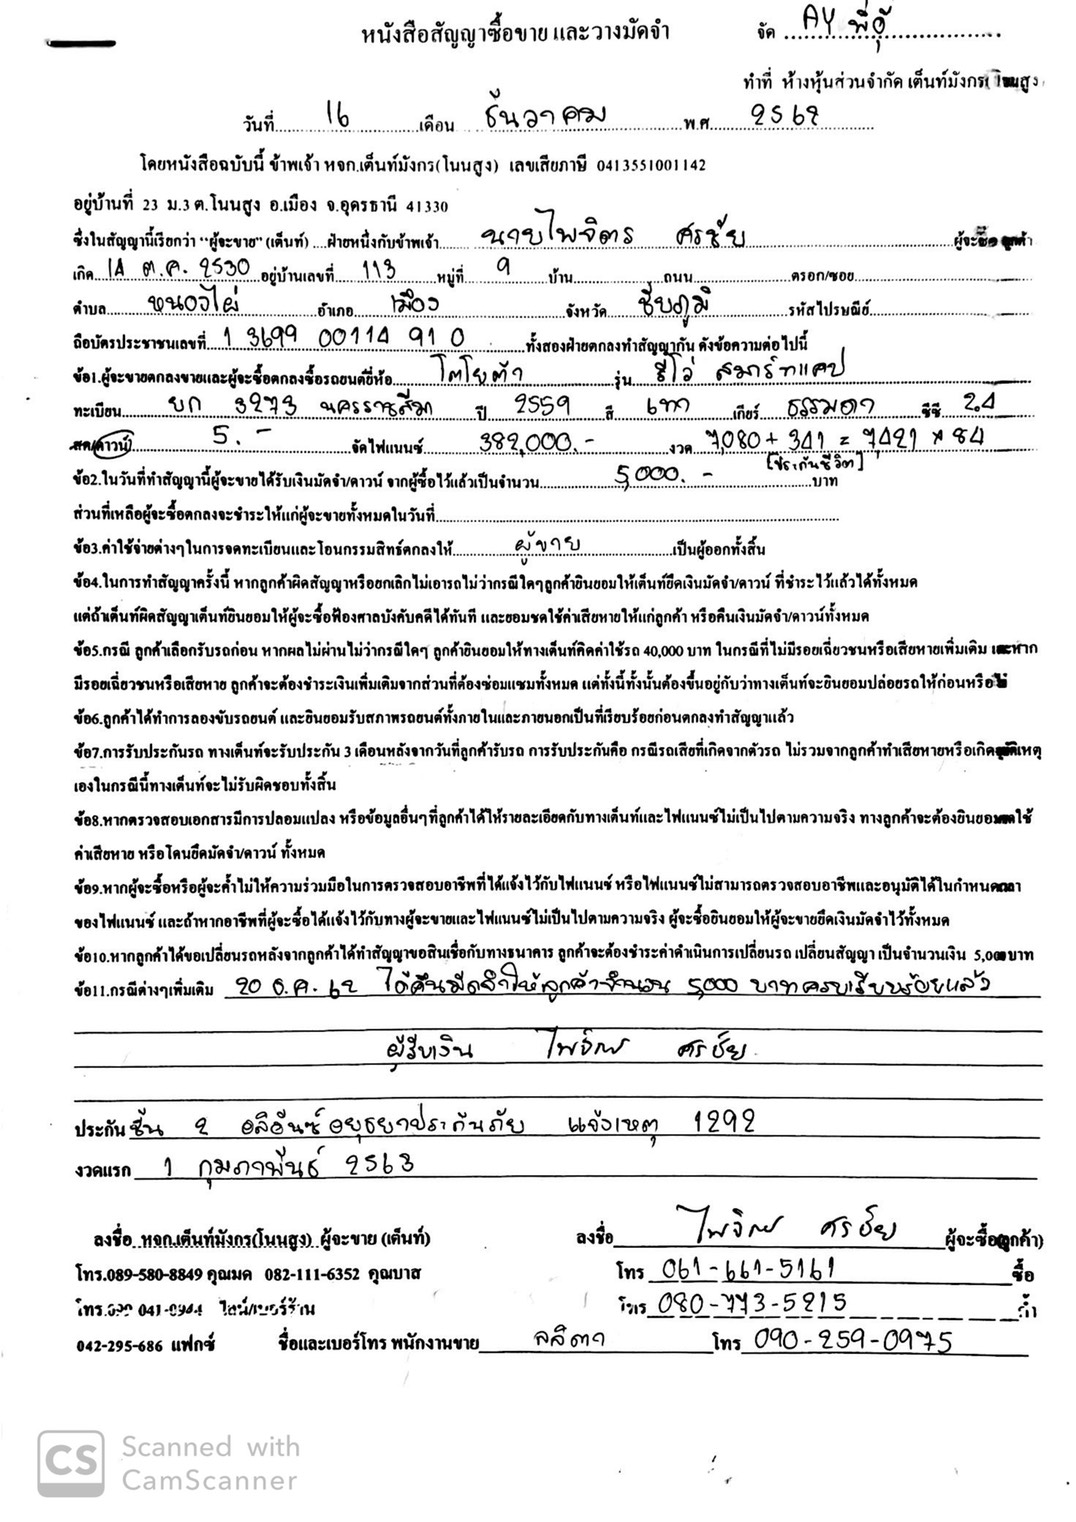 หนังสือสัญญาซื้อขาย และวางมัดจำ
จัด AY พี่อุ้
ทำที่ ห้างหุ้นส่วนจำกัด เต็นท์มังกร(โนนสูง
วันที่ 16 เดือน ธันวาคม พ.ศ. 2562
โดยหนังสือฉบับนี้ ข้าพเจ้า หจก.เต็นท์มังกร(โนนสูง) เลขเสียภาษี 0413551001142
อยู่บ้านที่ 23 ม.3 ต.โนนสูง อ.เมือง จ.อุดรธานี 41330
ซึ่งในสัญญานี้เรียกว่า "ผู้จะขาย" (เต็นท์) ...ฝ่ายหนึ่งกับข้าพเจ้า นายไพจิตร ศรชัย ผู้จะซื้อ ลูกค้า
เกิด 14 ต.ค. 2530 อยู่บ้านเลขที่ 113 หมู่ที่ 9 บ้าน ถนน ตรอก/ซอย
ตำบล หนองไผ่ อำเภอ เมือง จังหวัด ชัยภูมิ รหัสไปรษณีย์
ถือบัตรประชาชนเลขที่ 1 3699 00114 91 0 ทั้งสองฝ่ายตกลงทำสัญญากัน ดังข้อความต่อไปนี้
ข้อ1.ผู้จะขายตกลงขายและผู้จะซื้อตกลงซื้อรถยนต์ยี่ห้อ โตโยต้า รุ่น รีโว่ สมาร์ทแคป
ทะเบียน ยก 3273 นครราชสีมา ปี 2559 สี เทา เกียร์ ธรรมดา ซีซี 2.4
สด/ดาวน์ 5.- จัดไฟแนนซ์ 382,000.- งวด 7,080 + 341 = 7,421 * 84
[ประกันชีวิต]
ข้อ2.ในวันที่ทำสัญญานี้ผู้จะขายได้รับเงินมัดจำ/ดาวน์ จากผู้ซื้อไว้แล้วเป็นจำนวน 5,000.- บาท
ส่วนที่เหลือผู้จะซื้อตกลงจะชำระให้แก่ผู้จะขายทั้งหมดในวันที่
ข้อ3.ค่าใช้จ่ายต่างๆในการจดทะเบียนและโอนกรรมสิทธ์ตกลงให้ ผู้ขาย เป็นผู้ออกทั้งสิ้น
ข้อ4.ในการทำสัญญาครั้งนี้ หากลูกค้าผิดสัญญาหรือยกเลิกไม่เอารถไม่ว่ากรณีใดๆลูกค้ายินยอมให้เต็นท์ยึดเงินมัดจำ/ดาวน์ ที่ชำระไว้แล้วได้ทั้งหมด
แต่ถ้าเต็นท์ผิดสัญญาเต็นท์ยินยอมให้ผู้จะซื้อฟ้องศาลบังคับคดีได้ทันที และยอมชดใช้ค่าเสียหายให้แก่ลูกค้า หรือคืนเงินมัดจำ/ดาวน์ทั้งหมด
ข้อ5.กรณี ลูกค้าเลือกรับรถก่อน หากผลไม่ผ่านไม่ว่ากรณีใดๆ ลูกค้ายินยอมให้ทางเต็นท์คิดค่าใช้รถ 40,000 บาท ในกรณีที่ไม่มีรอยเฉี่ยวชนหรือเสียหายเพิ่มเติม และหาก
มีรอยเฉี่ยวชนหรือเสียหาย ลูกค้าจะต้องชำระเงินเพิ่มเติมจากส่วนที่ต้องซ่อมแซมทั้งหมด แต่ทั้งนี้ทั้งนั้นต้องขึ้นอยู่กับว่าทางเต็นท์จะยินยอมปล่อยรถให้ก่อนหรือไม่
ข้อ6.ลูกค้าได้ทำการลองขับรถยนต์ และยินยอมรับสภาพรถยนต์ทั้งภายในและภายนอกเป็นที่เรียบร้อยก่อนตกลงทำสัญญาแล้ว
ข้อ7.การรับประกันรถ ทางเต็นท์จะรับประกัน 3 เดือนหลังจากวันที่ลูกค้ารับรถ การรับประกันคือ กรณีรถเสียที่เกิดจากตัวรถ ไม่รวมจากลูกค้าทำเสียหายหรือเกิดอุบัติเหตุ
เองในกรณีนี้ทางเต็นท์จะไม่รับผิดชอบทั้งสิ้น
ข้อ8.หากตรวจสอบเอกสารมีการปลอมแปลง หรือข้อมูลอื่นๆที่ลูกค้าได้ให้รายละเอียดกับทางเต็นท์และไฟแนนซ์ไม่เป็นไปตามความจริง ทางลูกค้าจะต้องยินยอมชดใช้
ค่าเสียหาย หรือโดนยึดมัดจำ/ดาวน์ ทั้งหมด
ข้อ9.หากผู้จะซื้อหรือผู้จะค้ำไม่ให้ความร่วมมือในการตรวจสอบอาชีพที่ได้แจ้งไว้กับไฟแนนซ์ หรือไฟแนนซ์ไม่สามารถตรวจสอบอาชีพและอนุมัติได้ในกำหนดเวลา
ของไฟแนนซ์ และถ้าหากอาชีพที่ผู้จะซื้อได้แจ้งไว้กับทางผู้จะขายและไฟแนนซ์ไม่เป็นไปตามความจริง ผู้จะซื้อยินยอมให้ผู้จะขายยึดเงินมัดจำไว้ทั้งหมด
ข้อ10.หากลูกค้าได้ขอเปลี่ยนรถหลังจากลูกค้าได้ทำสัญญาขอสินเชื่อกับทางธนาคาร ลูกค้าจะต้องชำระค่าดำเนินการเปลี่ยนรถ เปลี่ยนสัญญา เป็นจำนวนเงิน 5,000บาท
ข้อ11.กรณีต่างๆเพิ่มเติม 20 ธ.ค. 62 ได้คืนมัดจำให้ลูกค้าจำนวน 5,000 บาทครบเรียบร้อยแล้ว
ผู้รับเงิน ไพจิตร ศรชัย
ประกัน ชั้น 2 อลิอันซ์อยุธยาประกันภัย แจ้งเหตุ 1292
งวดแรก 1 กุมภาพันธ์ 2563
ลงชื่อ หจก.เต็นท์มังกร(โนนสูง) ผู้จะขาย (เต็นท์) ลงชื่อ ไพจิตร ศรชัย ผู้จะซื้อ(ลูกค้า)
โทร.089-580-8849 คุณมด 082-111-6352 คุณบาส โทร 061-661-5161 ซื้อ
โทร. 041-0944 ไลน์/เบอร์ร้าน โทร 080-773-5215 ค้ำ
042-295-686 แฟกซ์ ชื่อและเบอร์โทร พนักงานขาย ลลิตา โทร 090-259-0975
CS Scanned with
CamScanner